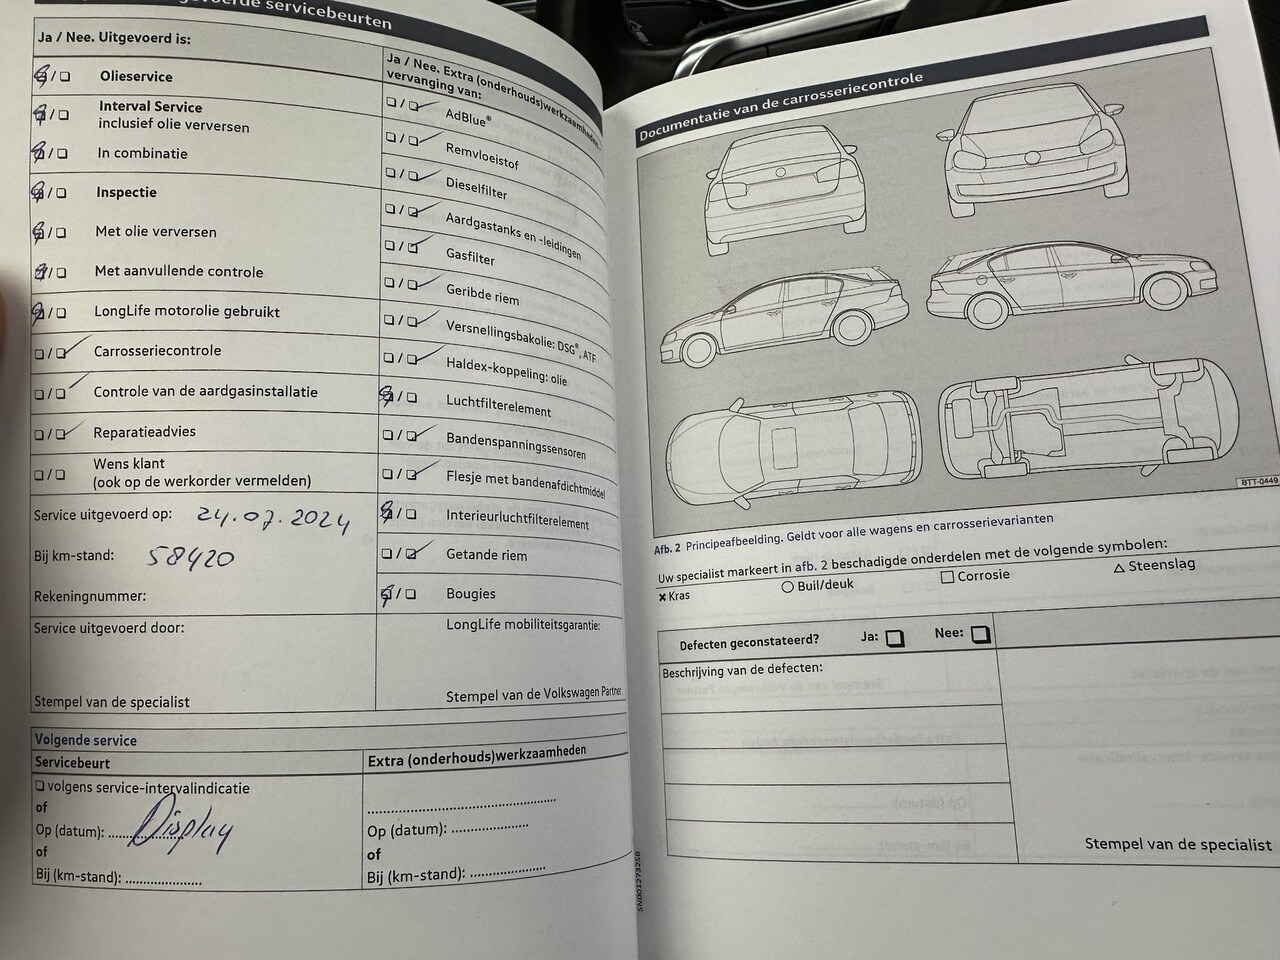 voerde servicebeurten
Ja / Nee. Uitgevoerd is:
❏/❏ Olieservice
❏/❏ Interval Service
inclusief olie verversen
❏/❏ In combinatie
❏/❏ Inspectie
❏/❏ Met olie verversen
❏/❏ Met aanvullende controle
❏/❏ LongLife motorolie gebruikt
❏/❏ Carrosseriecontrole
❏/❏ Controle van de aardgasinstallatie
❏/❏ Reparatieadvies
❏/❏ Wens klant
(ook op de werkorder vermelden)
Service uitgevoerd op: 24.07.2024
Bij km-stand: 58420
Rekeningnummer:
Service uitgevoerd door:
Stempel van de specialist
Ja / Nee. Extra (onderhouds)werkzaamheden,
vervanging van:
❏/❏ AdBlue®
❏/❏ Remvloeistof
❏/❏ Dieselfilter
❏/❏ Aardgastanks en -leidingen
❏/❏ Gasfilter
❏/❏ Geribde riem
❏/❏ Versnellingsbakolie: DSG®, ATF
❏/❏ Haldex-koppeling: olie
❏/❏ Luchtfilterelement
❏/❏ Bandenspanningssensoren
❏/❏ Flesje met bandenafdichtmiddel
❏/❏ Interieurluchtfilterelement
❏/❏ Getande riem
❏/❏ Bougies
LongLife mobiliteitsgarantie:
Stempel van de Volkswagen Partner
Volgende service
Servicebeurt
❏ volgens service-intervalindicatie
of
Op (datum): Display
of
Bij (km-stand): ....................
Extra (onderhouds)werkzaamheden
..................................................
Op (datum): ....................
of
Bij (km-stand): ....................
Documentatie van de carrosseriecontrole
BTT-0449
Afb. 2 Principeafbeelding. Geldt voor alle wagens en carrosserievarianten
Uw specialist markeert in afb. 2 beschadigde onderdelen met de volgende symbolen:
✗ Kras ○ Buil/deuk □ Corrosie △ Steenslag
Defecten geconstateerd? Ja: ❏ Nee: ❏
Beschrijving van de defecten:
Stempel van de specialist